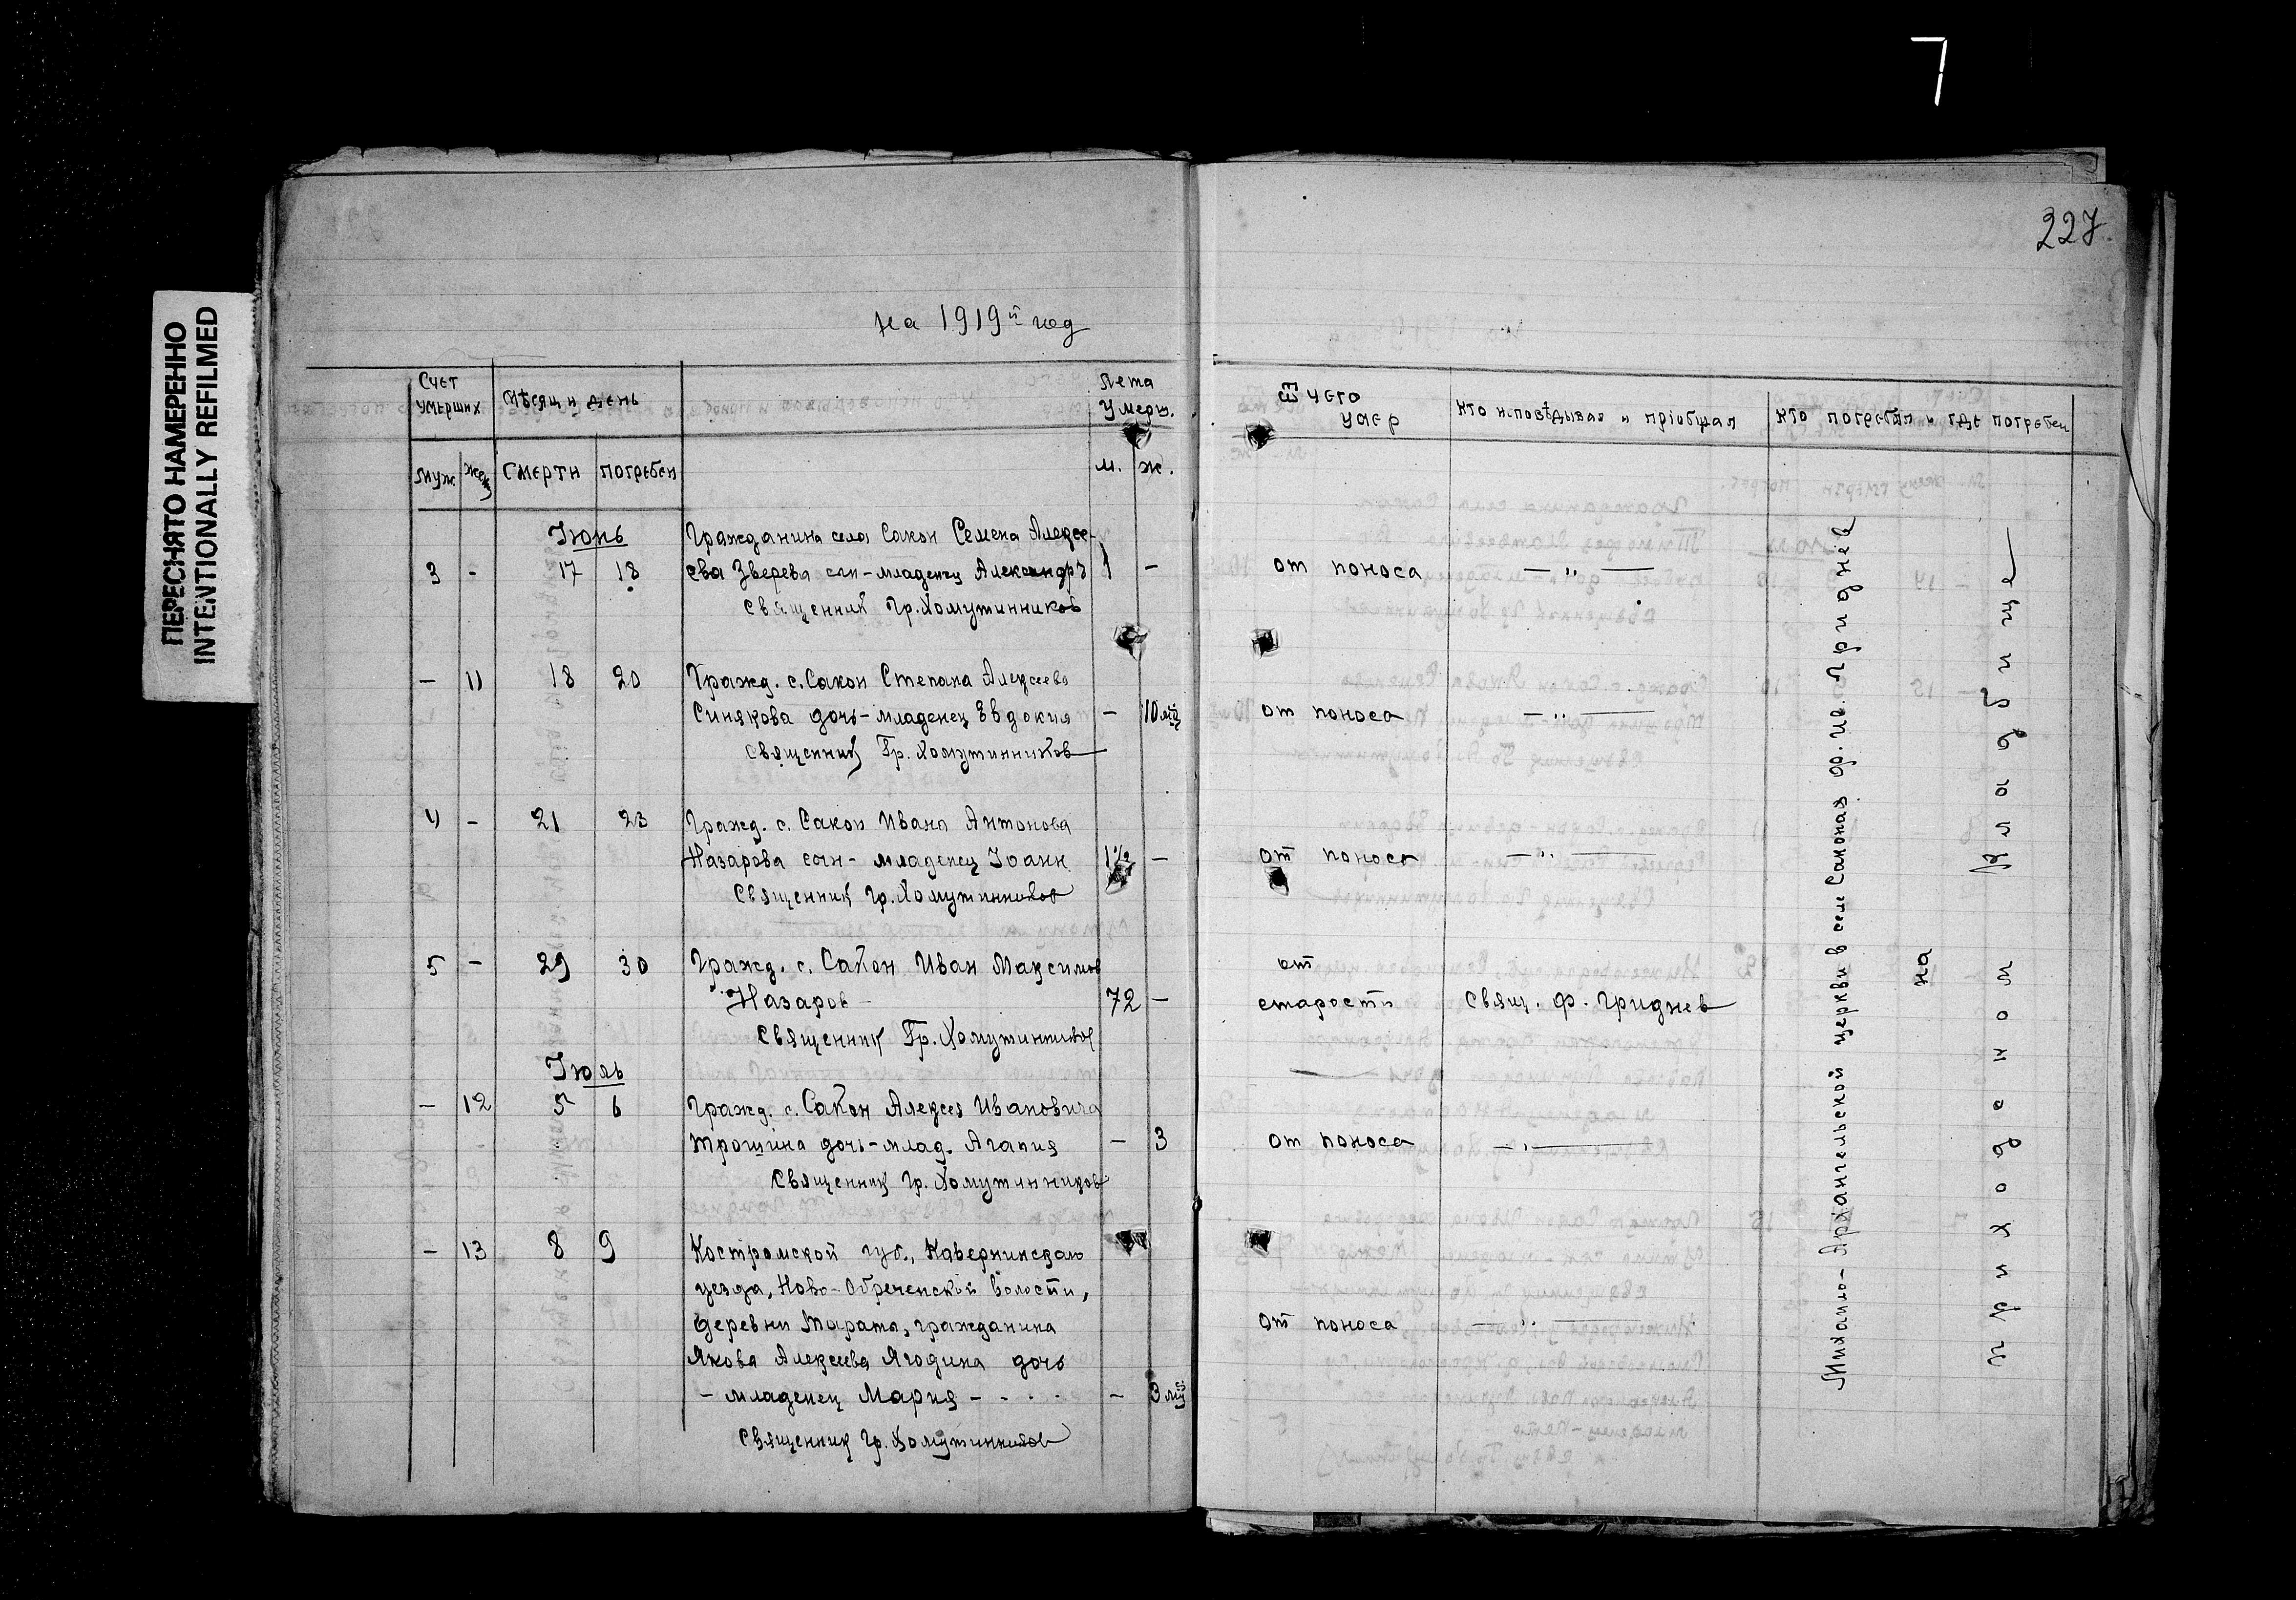 7
ПЕРЕСНЯТО НАМЕРЕННО
INTENTIONALLY REFILMED
227.
на 1919й год
Счет умерших
Мѣсяц и день
Лета Умерш.
Из чего умер
Кто исповѣдывал и пріобщал
Кто погребал и где погребен
Муж
Жен
Смерти
погребен
м.
ж.
Іюнь
Гражданина села Сакон Семена Алексе-
3 - 17 18 ева Зверева сын-младенец Александръ 1 - от поноса — " —
Священник Гр. Хомутинников
- 11 18 20 Гражд. с. Сакон Степана Алексеева
Синякова дочь-младенец Евдокия - 10 мц от поноса — " —
Священник Гр. Хомутинников
4 - 21 23 Гражд. с. Сакон Ивана Антонова
Назарова сын-младенец Іоанн 1½ - от поноса — " —
Священник Гр. Хомутинников
5 - 29 30 Гражд. с. Сакон Иван Максимов от
Назаров 72 - старости Свящ. Ф. Гриднев
Священник Гр. Хомутинников
Іюль
- 12 5 6 Гражд. с. Сакон Алексея Ивановича
Трошина дочь-млад. Агапия - 3 от поноса — " —
Священник Гр. Хомутинников
- 13 8 9 Костромской губ., Кавернинскаго
уезда, Ново-Обреченской волости,
деревни Мырамы, гражданина от поноса — " —
Якова Алексеева Ягодина дочь
- младенец Мария - - 3 мц
Священник Гр. Хомутинников
Михаило-Архангельской церкви в селе Саконах Ф. Ив. Гриднев
на
приходском кладбище